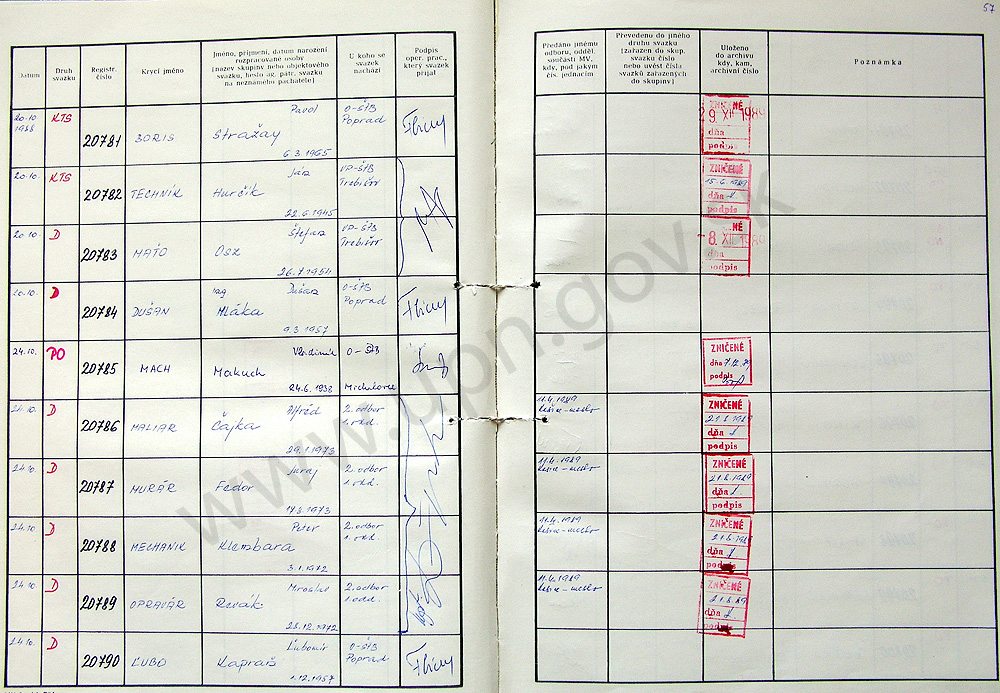 57
Datum
Druh svazku
Registr. číslo
Krycí jméno
Jméno, příjmení, datum narození rozpracované osoby
[název skupiny nebo objektového svazku, heslo ag. pátr. svazku
na neznámého pachatele]
U koho se svazek nachází
Podpis oper. prac., který svazek přijal
Předáno jinému odboru, odděl. součásti MV, kdy, pod jakým čís. jednacím
Převedeno do jiného druhu svazku
[zařazen do skup. svazku číslo nebo uvést čísla svazků zařazených do skupiny]
Uloženo do archivu kdy, kam, archivní číslo
Poznámka
20.10 1988 KTS 20781 BORIS Pavol Stražay 6.3.1965 O-ŠTB Poprad
9. XII. 1989
dňa
podpis
20.10. KTS 20782 TECHNIK Jan Hurčík 22.6.1945 VP-ŠTB Trebišov
ZNIČENÉ
15.6.1989
dňa
podpis
20.10. D 20783 MAŤO Štefan Osz 26.7.1954 VP-ŠTB Trebišov
8. XII. 1989
dňa
podpis
20.10. D 20784 DUŠAN ing. Dušan Mláka 9.3.1957 O-ŠTB Poprad
24.10. PO 20785 MACH Vladimír Makuch 24.6.1938 O-ŠTB Michalovce
ZNIČENÉ
dňa 7.12.89
podpis
24.10. D 20786 MALIAR Alfréd Čajka 29.1.1973 2. odbor 1. odd.
11.4.1989
ZNIČENÉ
21.8.1989
dňa
podpis
24.10. D 20787 MURÁR Juraj Fedor 2. odbor 1. odd.
11.4.1989
ZNIČENÉ
21.8.1989
dňa
podpis
24.10. D 20788 MECHANIK Peter Klembara 3.1.1972 2. odbor 1. odd.
11.4.1989
ZNIČENÉ
21.8.1989
dňa
podpis
24.10. D 20789 OPRAVÁR Miroslav 28.12.1972 2. odbor 1. odd.
11.4.1989
ZNIČENÉ
21.8.89
dňa
podpis
24.10. D 20790 ĽUBO Ľubomír Kapraš 1.12.1957 O-ŠTB Poprad
www.upn.gov.sk